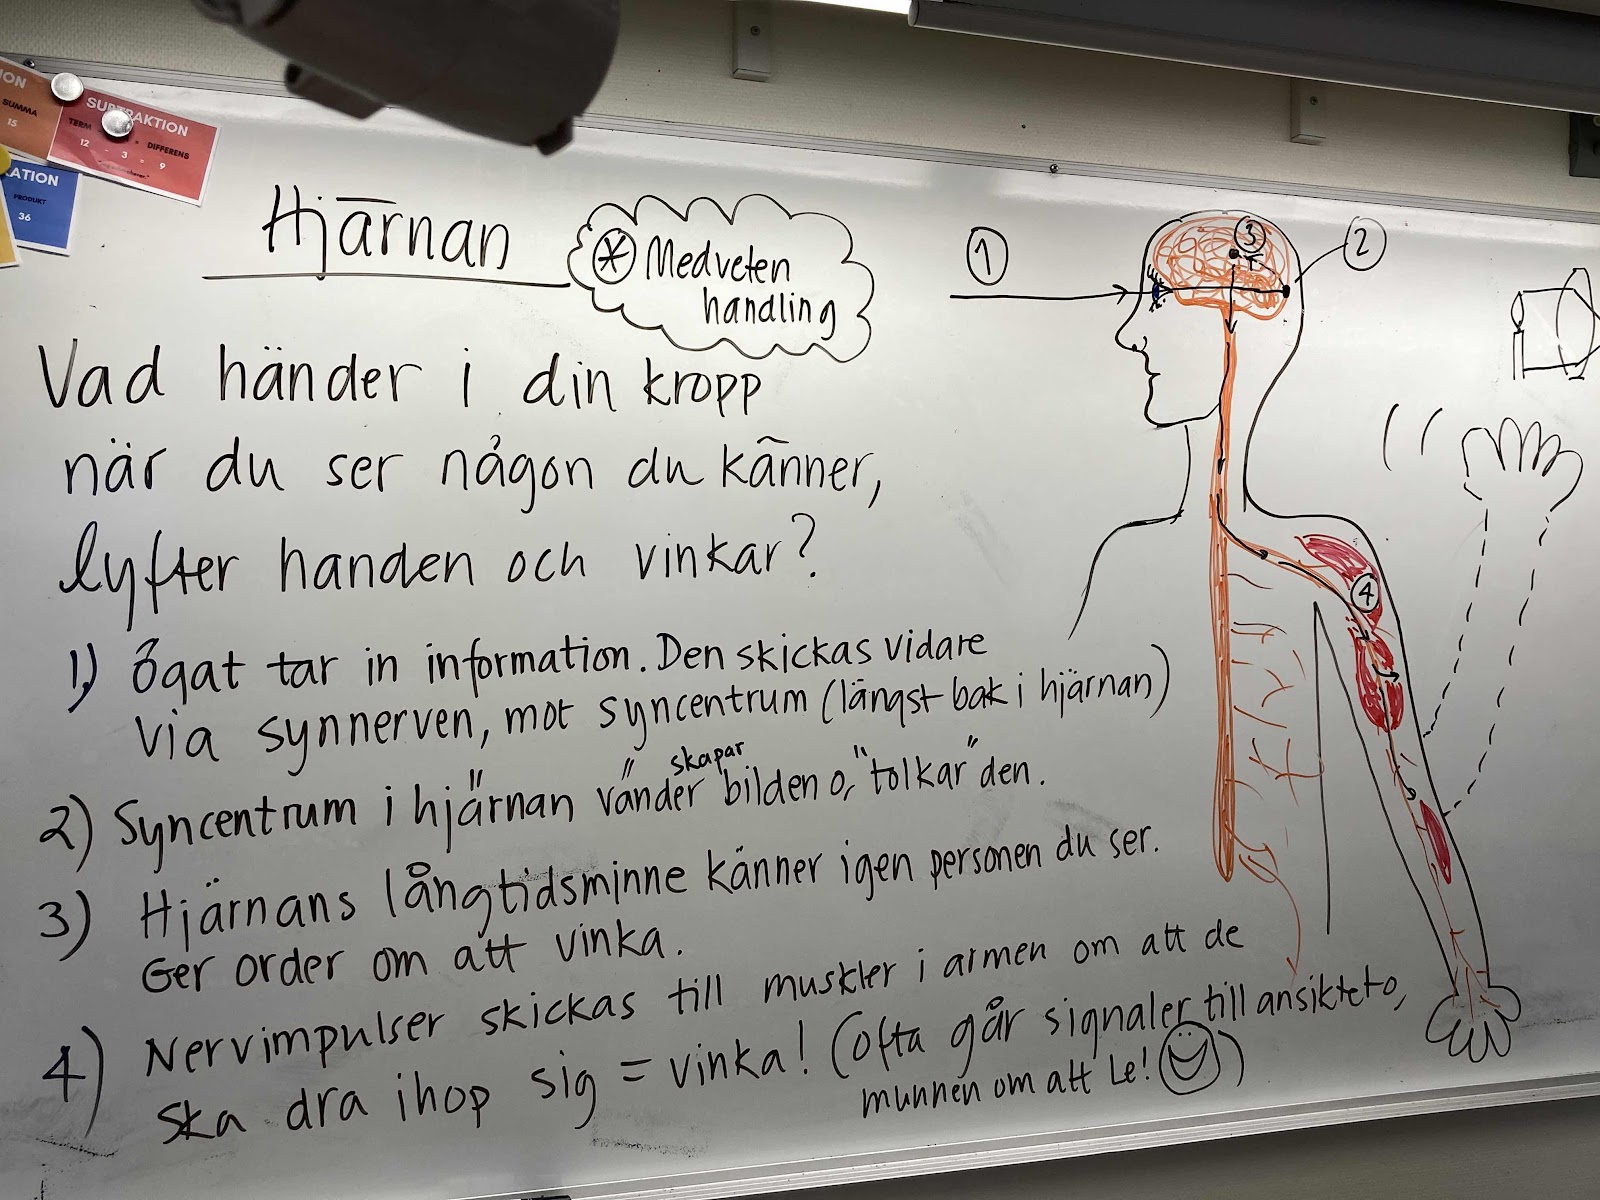 ION
SUMMA
15
SUBTRAKTION
TERM DIFFERENS
12 - 3 = 9
ATION
PRODUKT
36
Hjärnan
* Medveten
handling
Vad händer i din kropp
när du ser någon du känner,
lyfter handen och vinkar?
1) Ögat tar in information. Den skickas vidare
via synnerven, mot syncentrum (längst bak i hjärnan)
skapar
2) Syncentrum i hjärnan "vänder" bilden o, "tolkar" den.
3) Hjärnans långtidsminne känner igen personen du ser.
Ger order om att vinka.
4) Nervimpulser skickas till muskler i armen om att de
ska dra ihop sig = vinka! (Ofta går signaler till ansiktet o,
munnen om att Le! )
1
3
2
4